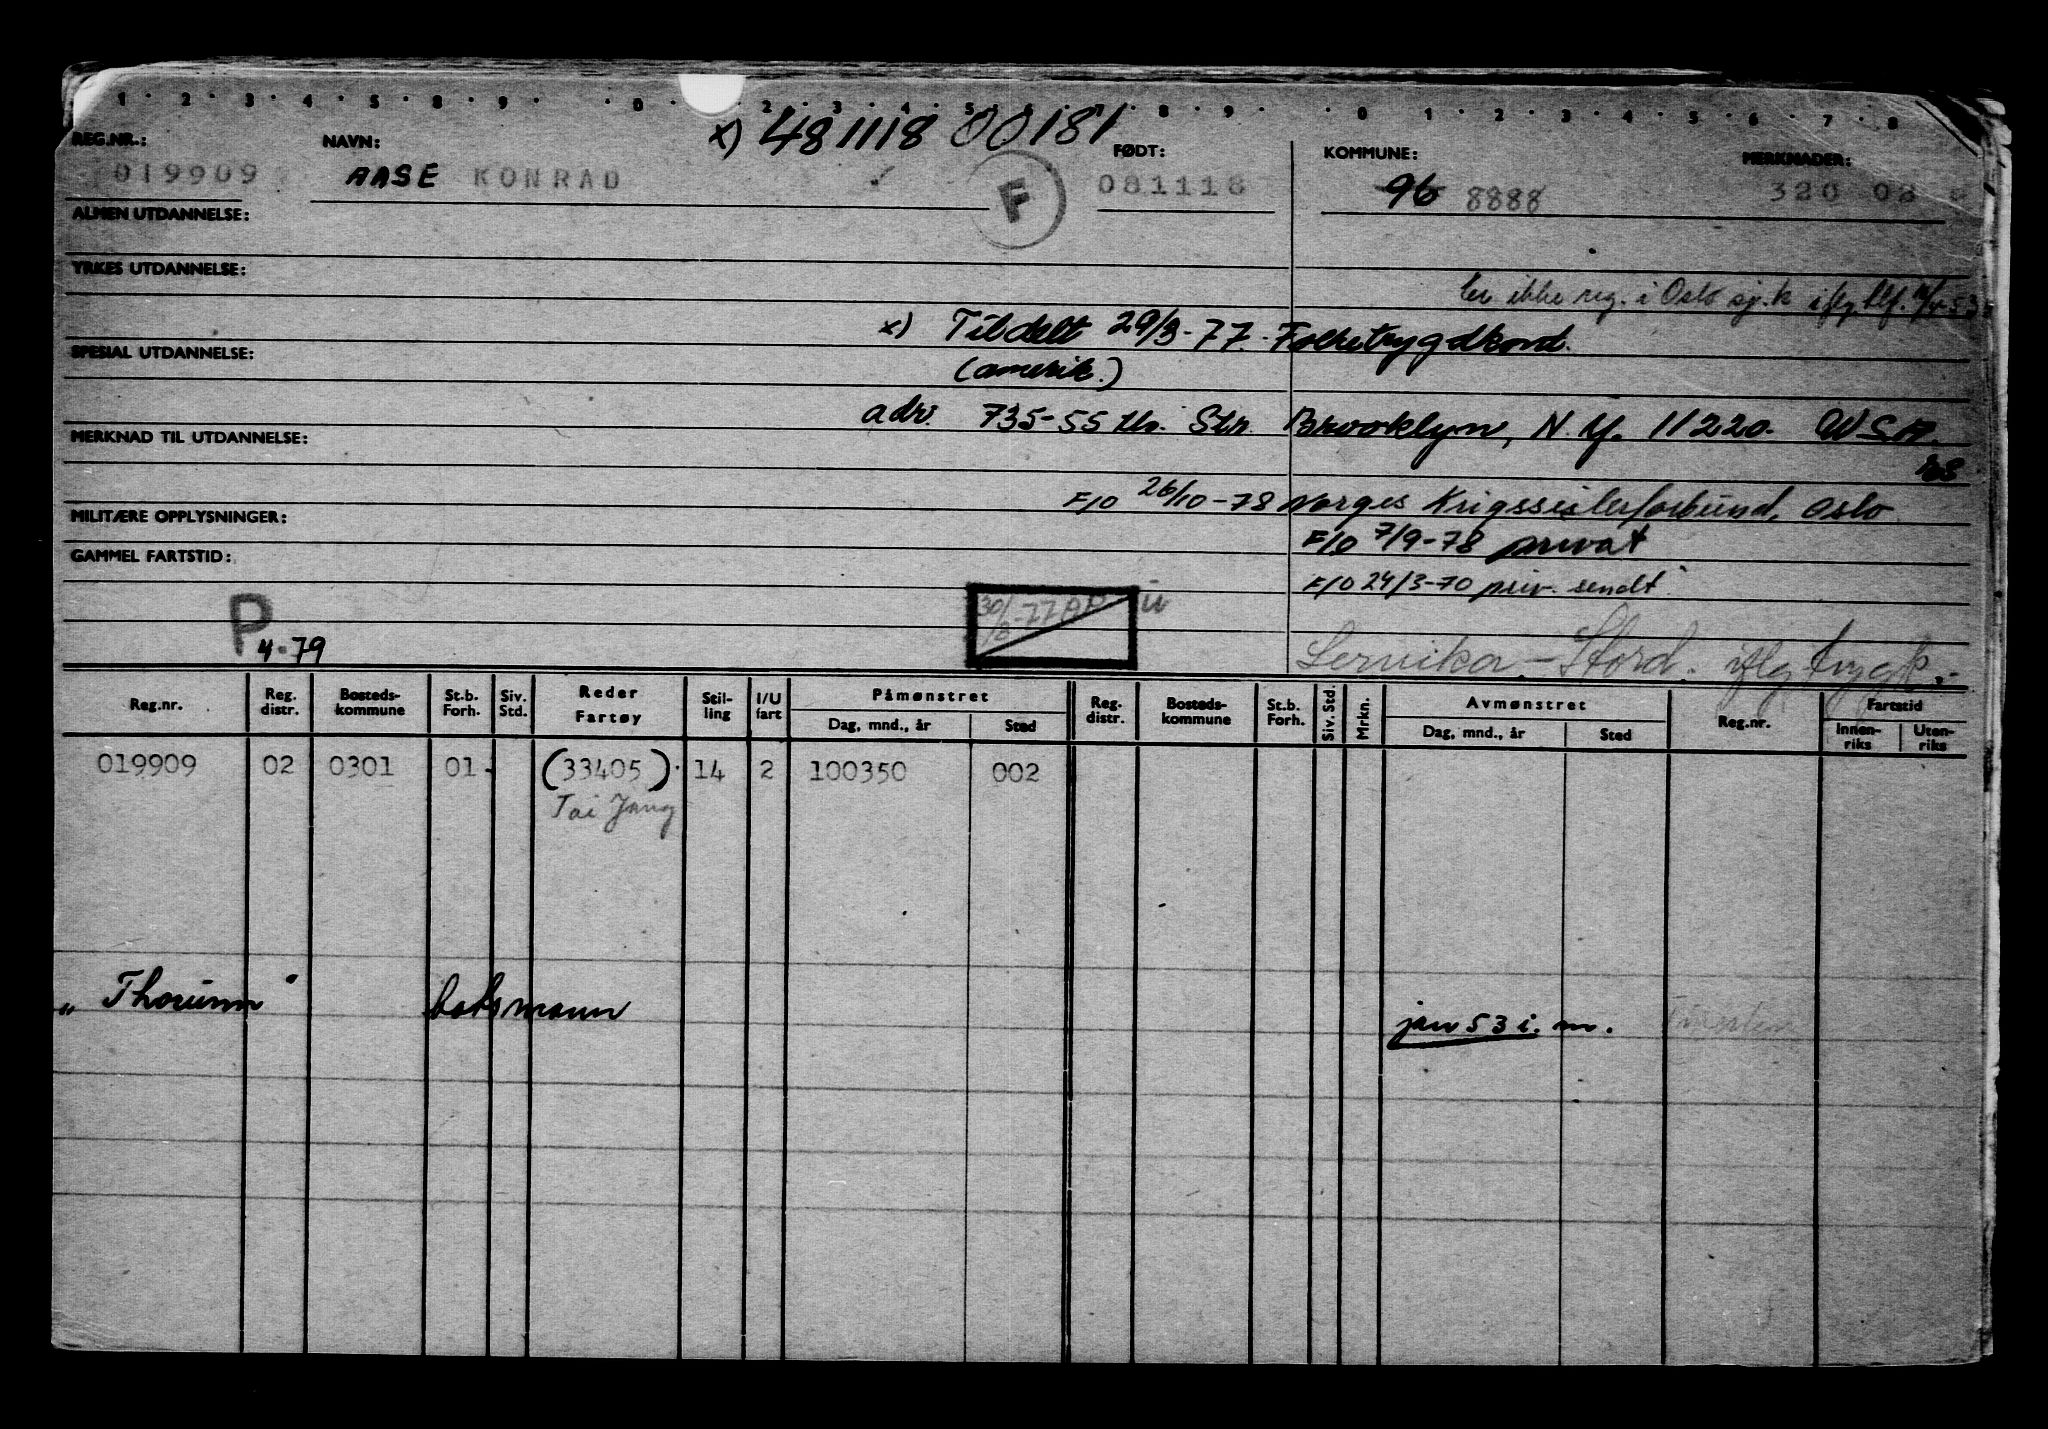 1 · 2 · 3 · 4 · 5 · 8 · 9 · · 0 · 2 · 3 · 4 · 5 · 6 · 7 · 8 · 9 · · 0 · 1 · 2 · 3 · 4 · 5 · 6 · 7 · 8
x) 481118 00181
REG.NR.: NAVN: FØDT: KOMMUNE: MERKNADER:
019909 AASE KONRAD F 081118 96 8888 320 08
ALMEN UTDANNELSE:
YRKES UTDANNELSE:
Er ikke reg. i Oslo sj.k iflg tlf. 53
x) Tildelt 29/3-77. Folketrygdkond.
SPESIAL UTDANNELSE:
(amerik.)
adr. 735-55 th. Str. Brooklyn, N.Y. 11220. USA.
MERKNAD TIL UTDANNELSE:
F/O 26/10-78 Norges Krigsseilerforbund, Oslo
MILITÆRE OPPLYSNINGER:
F/O 7/9-78 privat
GAMMEL FARTSTID:
F/O 24/3-70 priv. sendt
30/ -77
P 4-79
Lervika - Stord. iflg trygk.
Reg.nr. Reg. distr. Bosteds-kommune St.b. Forh. Siv. Std. Reder Fartøy Stil-ling I/U fart Påmønstret Dag, mnd., år Sted Reg. distr. Bosteds-kommune St.b. Forh. Siv. Std. Mrkn. Avmønstret Dag, mnd., år Sted Reg.nr. Fartstid Innen-riks Uten-riks
019909 02 0301 01 (33405) 14 2 100350 002
Tai Yang
"Thorunn" båtsmann jan 53 i. m.